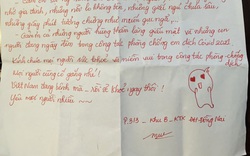 nhớ gia đình, những nỗi lo không tên, những giấc ngủ chưa sâu,
những giây phút tưởng chừng như muốn gục ngã,...
- Cảm ơn những người hùng thầm lặng giấu mặt và những
người đang ngày đêm trong công tác phòng chống em dịch Covid 2021
Kính chúc mọi người sức khoẻ và niềm vui trong công tác phòng chống dịch
Mọi người cùng cố gắng nhé!
Việt Nam đang bệnh mà... Nó sẽ khoẻ ngay thôi!
Yêu mọi người nhiều ~
P.313 _ Khu B _ KTX ĐH Đồng Nai